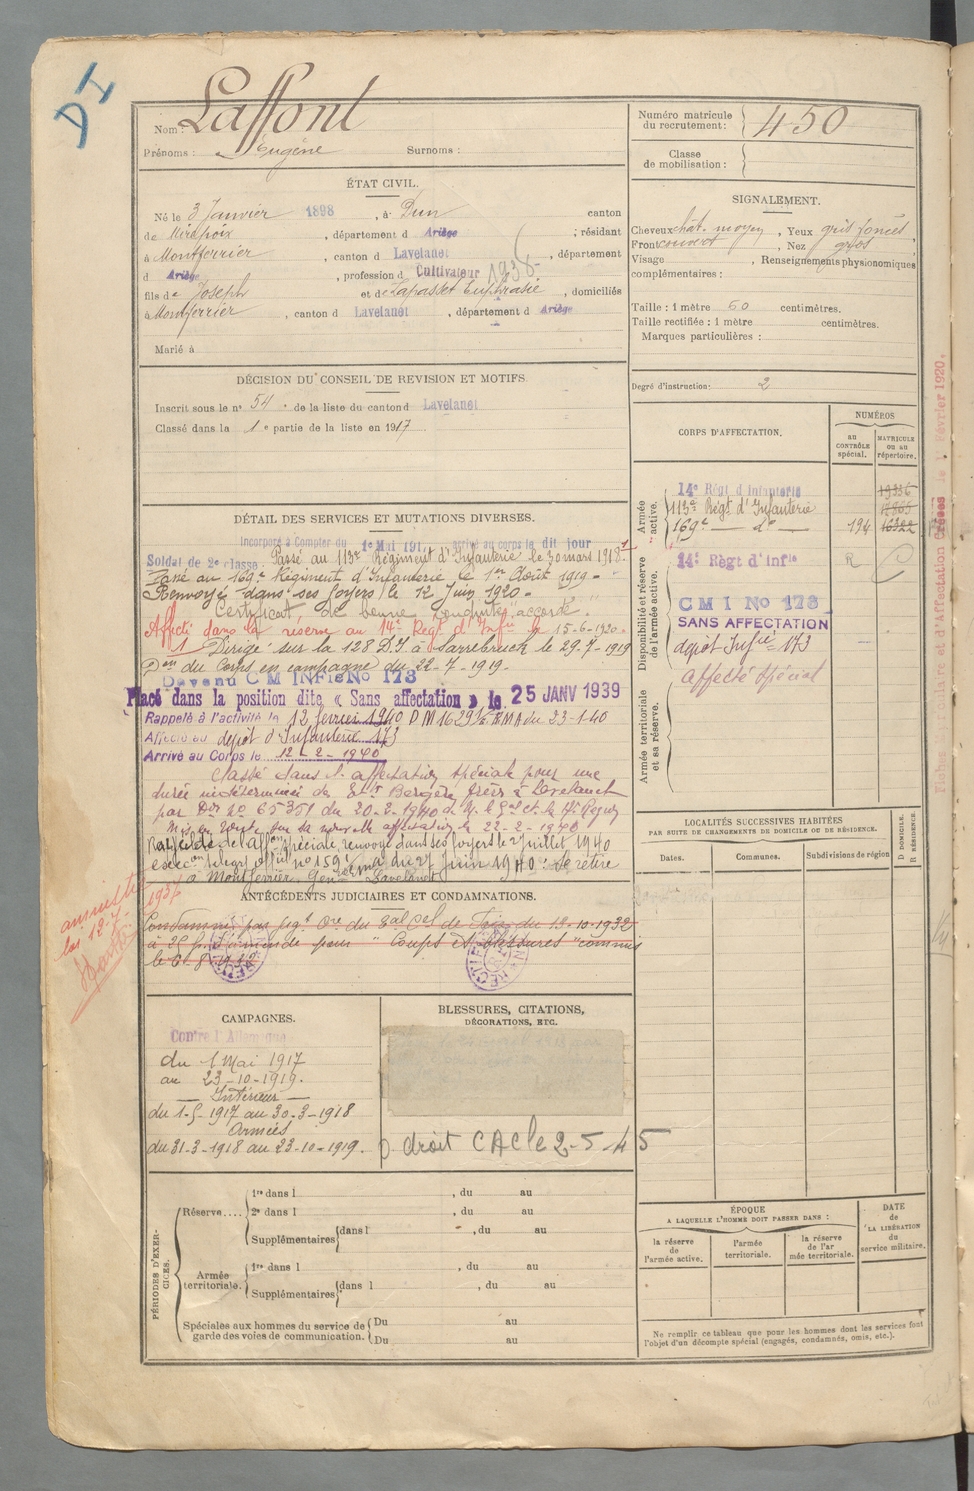 DI
Nom : Laffont
Prénoms : Eugène Surnoms :
Numéro matricule du recrutement : 450
Classe de mobilisation :
ÉTAT CIVIL.
Né le 3 Janvier 1898, à Dun canton
de Mirepoix, département d Ariège ; résidant
à Montferrier, canton d Lavelanet, département
d Ariège, profession d Cultivateur 1938-
fils de Joseph et de Lapasset Euphrasie, domiciliés
à Montferrier, canton d Lavelanet, département d Ariège
Marié à
SIGNALEMENT.
Cheveux chât. moyen, Yeux gris foncés
Front couvert, Nez gros
Visage , Renseignements physionomiques
complémentaires :
Taille : 1 mètre 60 centimètres.
Taille rectifiée : 1 mètre centimètres.
Marques particulières :
Degré d'instruction : 2
DÉCISION DU CONSEIL DE REVISION ET MOTIFS.
Inscrit sous le n° 54 de la liste du canton d Lavelanet
Classé dans la 1e partie de la liste en 1917
CORPS D'AFFECTATION.
NUMÉROS
au CONTRÔLE spécial.
MATRICULE ou au répertoire.
Armée active.
14e Régt d'Infanterie
113e Régt d'Infanterie
169e — do — 194 16322
Disponibilité et réserve de l'armée active.
14e Règt d'Infie R
C M I No 173
SANS AFFECTATION
dépôt Infie 173
affecté spécial
Armée territoriale et sa réserve.
DÉTAIL DES SERVICES ET MUTATIONS DIVERSES.
Incorporé à Compter du 1e Mai 1917 arrivé au corps le dit jour
Soldat de 2e classe. Passé au 113e Régiment d'Infanterie le 30 mars 1918
Passé au 169e Régiment d'Infanterie le 1er Août 1919 -
Renvoyé dans ses foyers le 12 Juin 1920 -
Certificat de bonne conduite "accordé".
Affecté dans la réserve au 14e Régt d'Infie le 15-6-1920.
1 Dirigé sur la 128 D.I. à Sarrebruck le 29-7-1919
Don du Corps en campagne du 22-7-1919.
Devenu C M INFie No 173
Placé dans la position dite « Sans affectation » le 25 JANV 1939
Rappelé à l'activité le 12 février 1940 DM 1629 du 23-1-40
Affecté au dépôt d'Infanterie 173
Arrivé au Corps le 12-2-1940
Classé dans l'affectation spéciale pour une
durée indéterminée de Ets Bergère frères à Lavelanet
par Don No 65351 du 20-2-1940 de M. le Gal Ct la 17e Région
Mis en route sur sa nouvelle affectation le 22-2-1940
de l'affon spéciale, renvoyé dans ses foyers le 2 juillet 1940
no 159 du 27 Juin 1940. Se retire
à Montferrier, Lavelanet
LOCALITÉS SUCCESSIVES HABITÉES
PAR SUITE DE CHANGEMENTS DE DOMICILE OU DE RÉSIDENCE.
Dates. Communes. Subdivisions de région
D DOMICILE. R RÉSIDENCE.
ANTÉCÉDENTS JUDICIAIRES ET CONDAMNATIONS.
Condamné par jugt Ore du Bal Cel de Foix du 13-10-1932
à 25 f. d'amende pour "Coups et blessures" commis
le 6-8-1932
amnistié
loi 12-7-
1937
CAMPAGNES.
Contre l'Allemagne
du 1 Mai 1917
au 23-10-1919.
— Intérieur —
du 1-5-1917 au 30-3-1918
Armées
du 31-3-1918 au 23-10-1919.
BLESSURES, CITATIONS,
DÉCORATIONS, ETC.
droit CAC le 2-5-45
PÉRIODES D'EXERCICES.
Réserve....
1re dans l , du au
2e dans l , du au
Supplémentaires dans l , du au
Armée territoriale.
1re dans l , du au
Supplémentaires dans l , du au
Spéciales aux hommes du service de garde des voies de communication.
Du au
Du au
ÉPOQUE
A LAQUELLE L'HOMME DOIT PASSER DANS :
la réserve de l'armée active.
l'armée territoriale.
la réserve de l'armée territoriale.
DATE de LA LIBÉRATION du service militaire.
Ne remplir ce tableau que pour les hommes dont les services font
l'objet d'un décompte spécial (engagés, condamnés, omis, etc.).